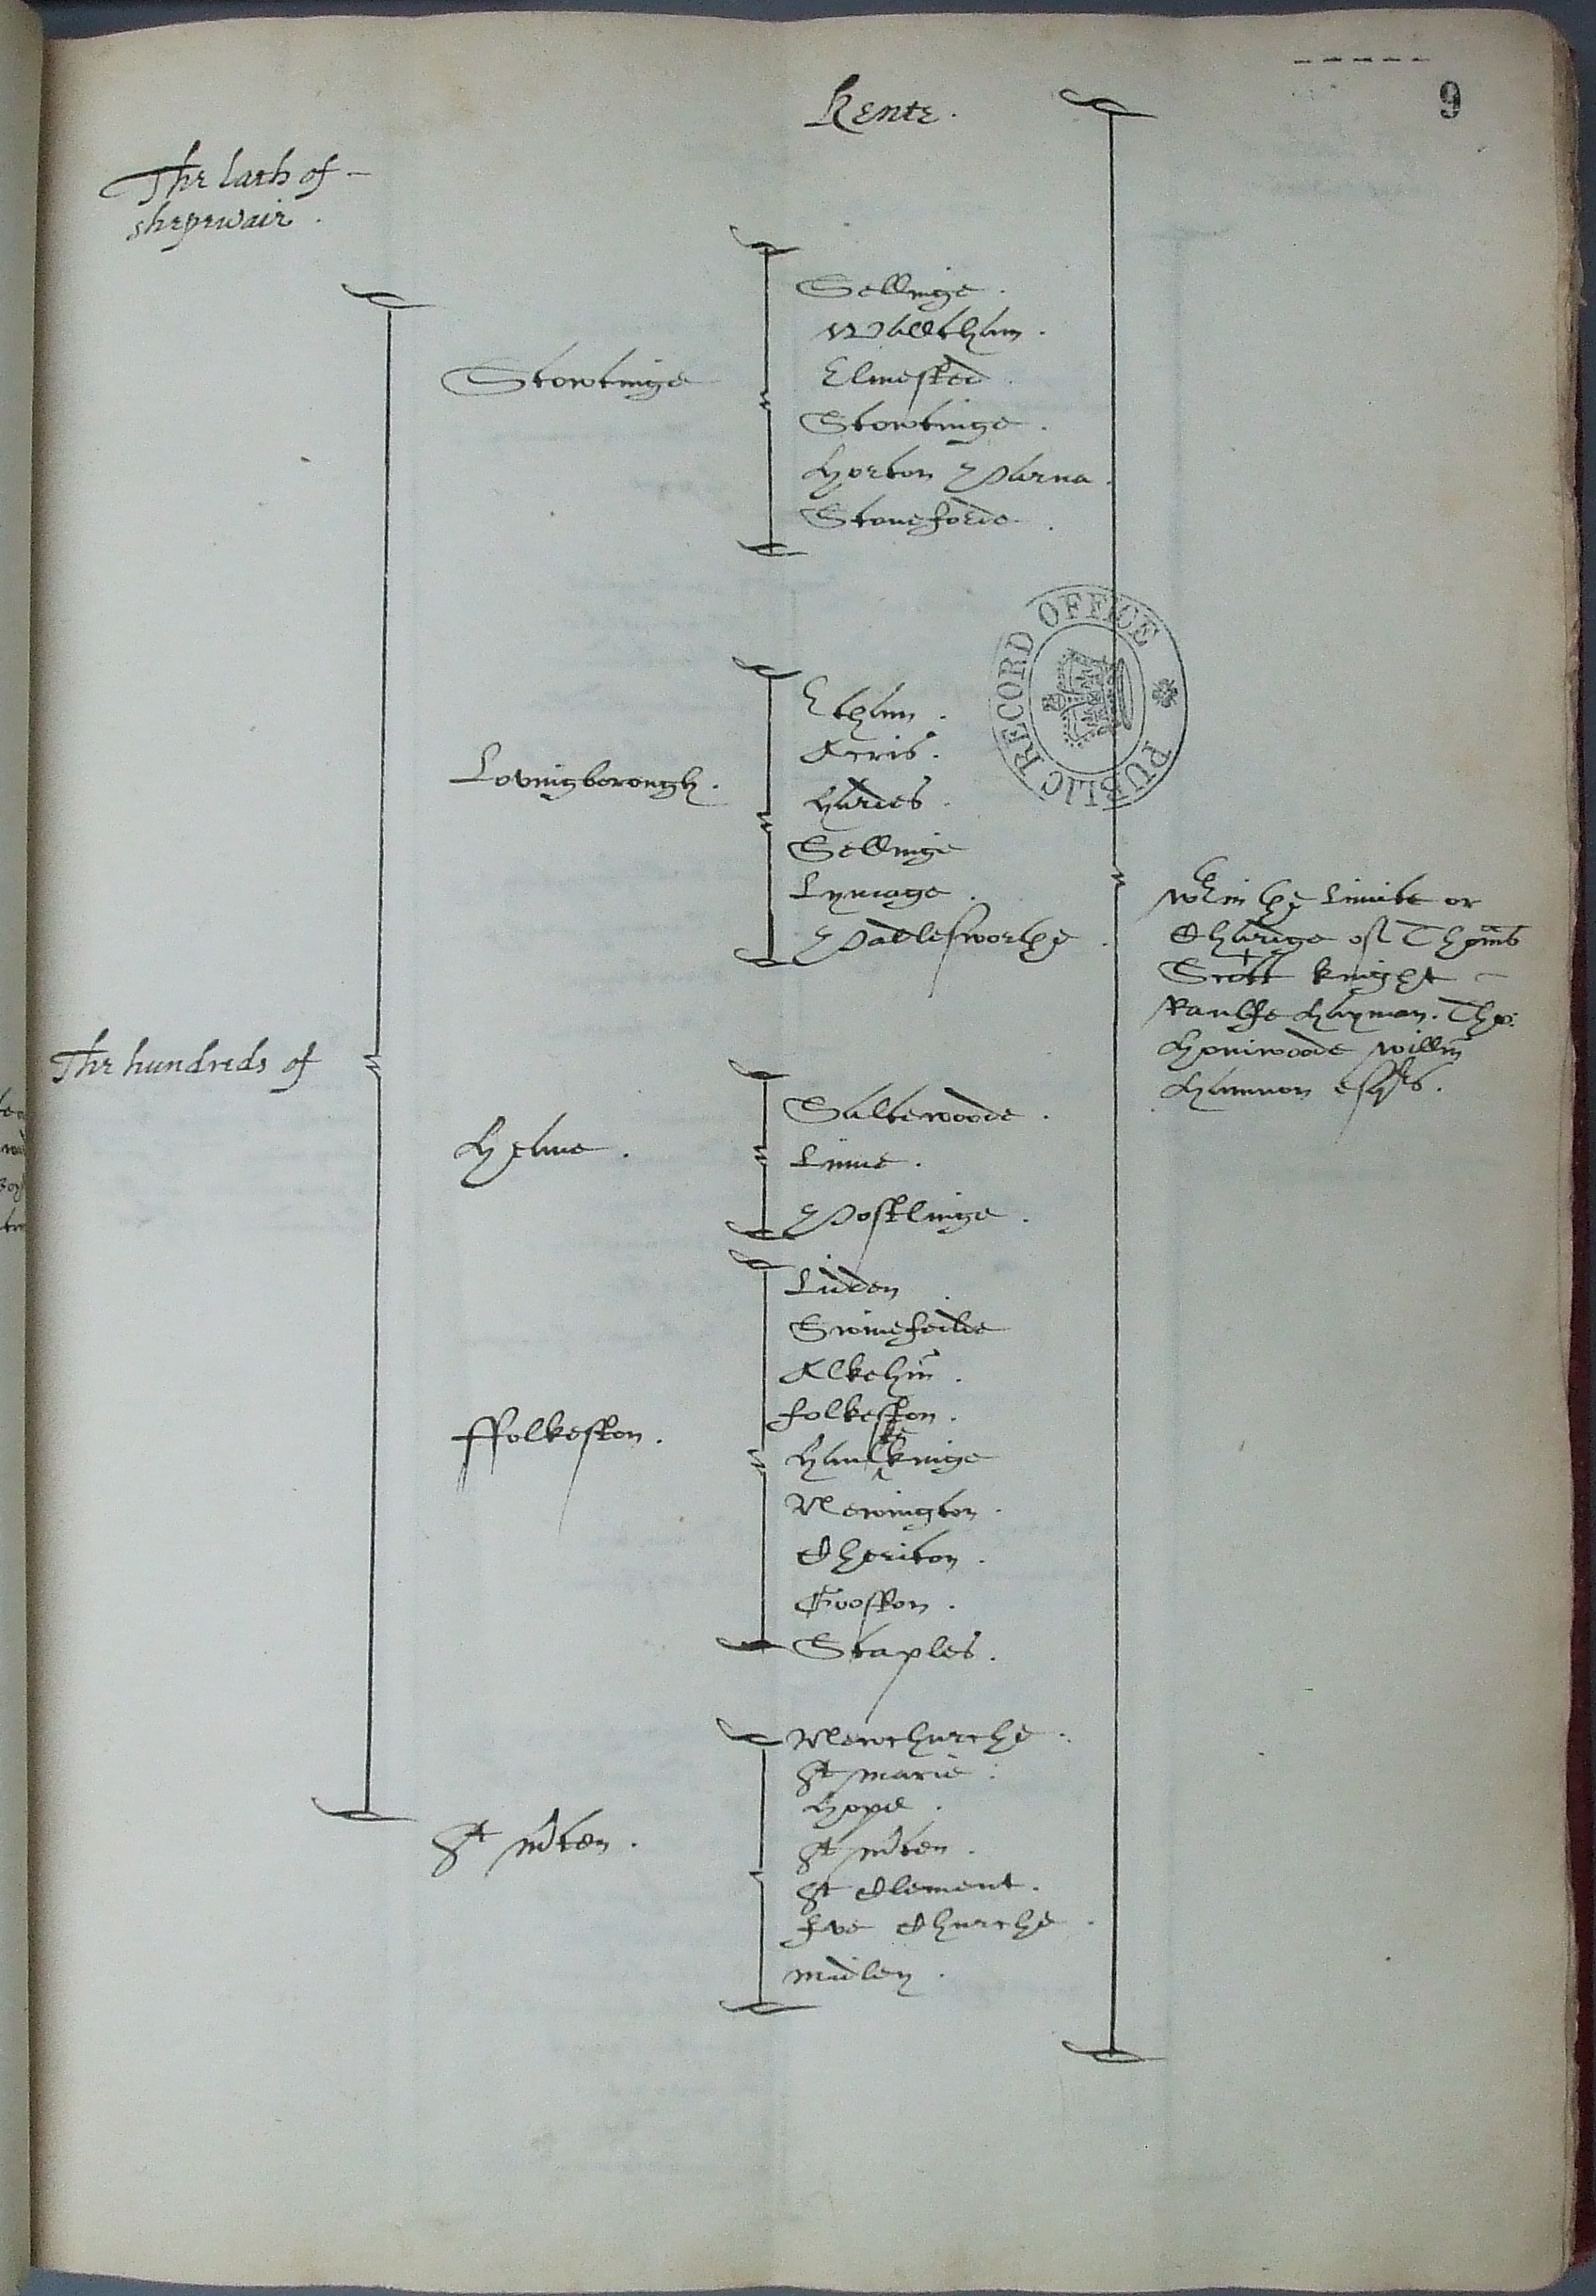 Kente.
9
The lath of -
shepwair.
Stowtinge
Sellinge.
Walltham.
Elmested.
Stowtinge.
Horton Parua.
Stoneforde.
PUBLIC RECORD OFFICE
Lovingborough.
Etham.
Acris.
Hardes.
Sellinge
Lymage.
Padlesworthe.
wthin the limite or
Chardge of Thoms
Scott knight -
Raulfe Hayman. Tho:
Honiwoode Willm
Hamnon esqrs.
The hundreds of
Heane.
Saltewoode.
Lime.
Postlinge.
ffolkeston.
Lidden
Swinefeilde
Alkehm.
folkeston.
Newington.
Cheriton.
Staples.
St mten.
Newchurche.
St marie.
Hope.
St mten.
St Clement.
Ive Churche.
midley.